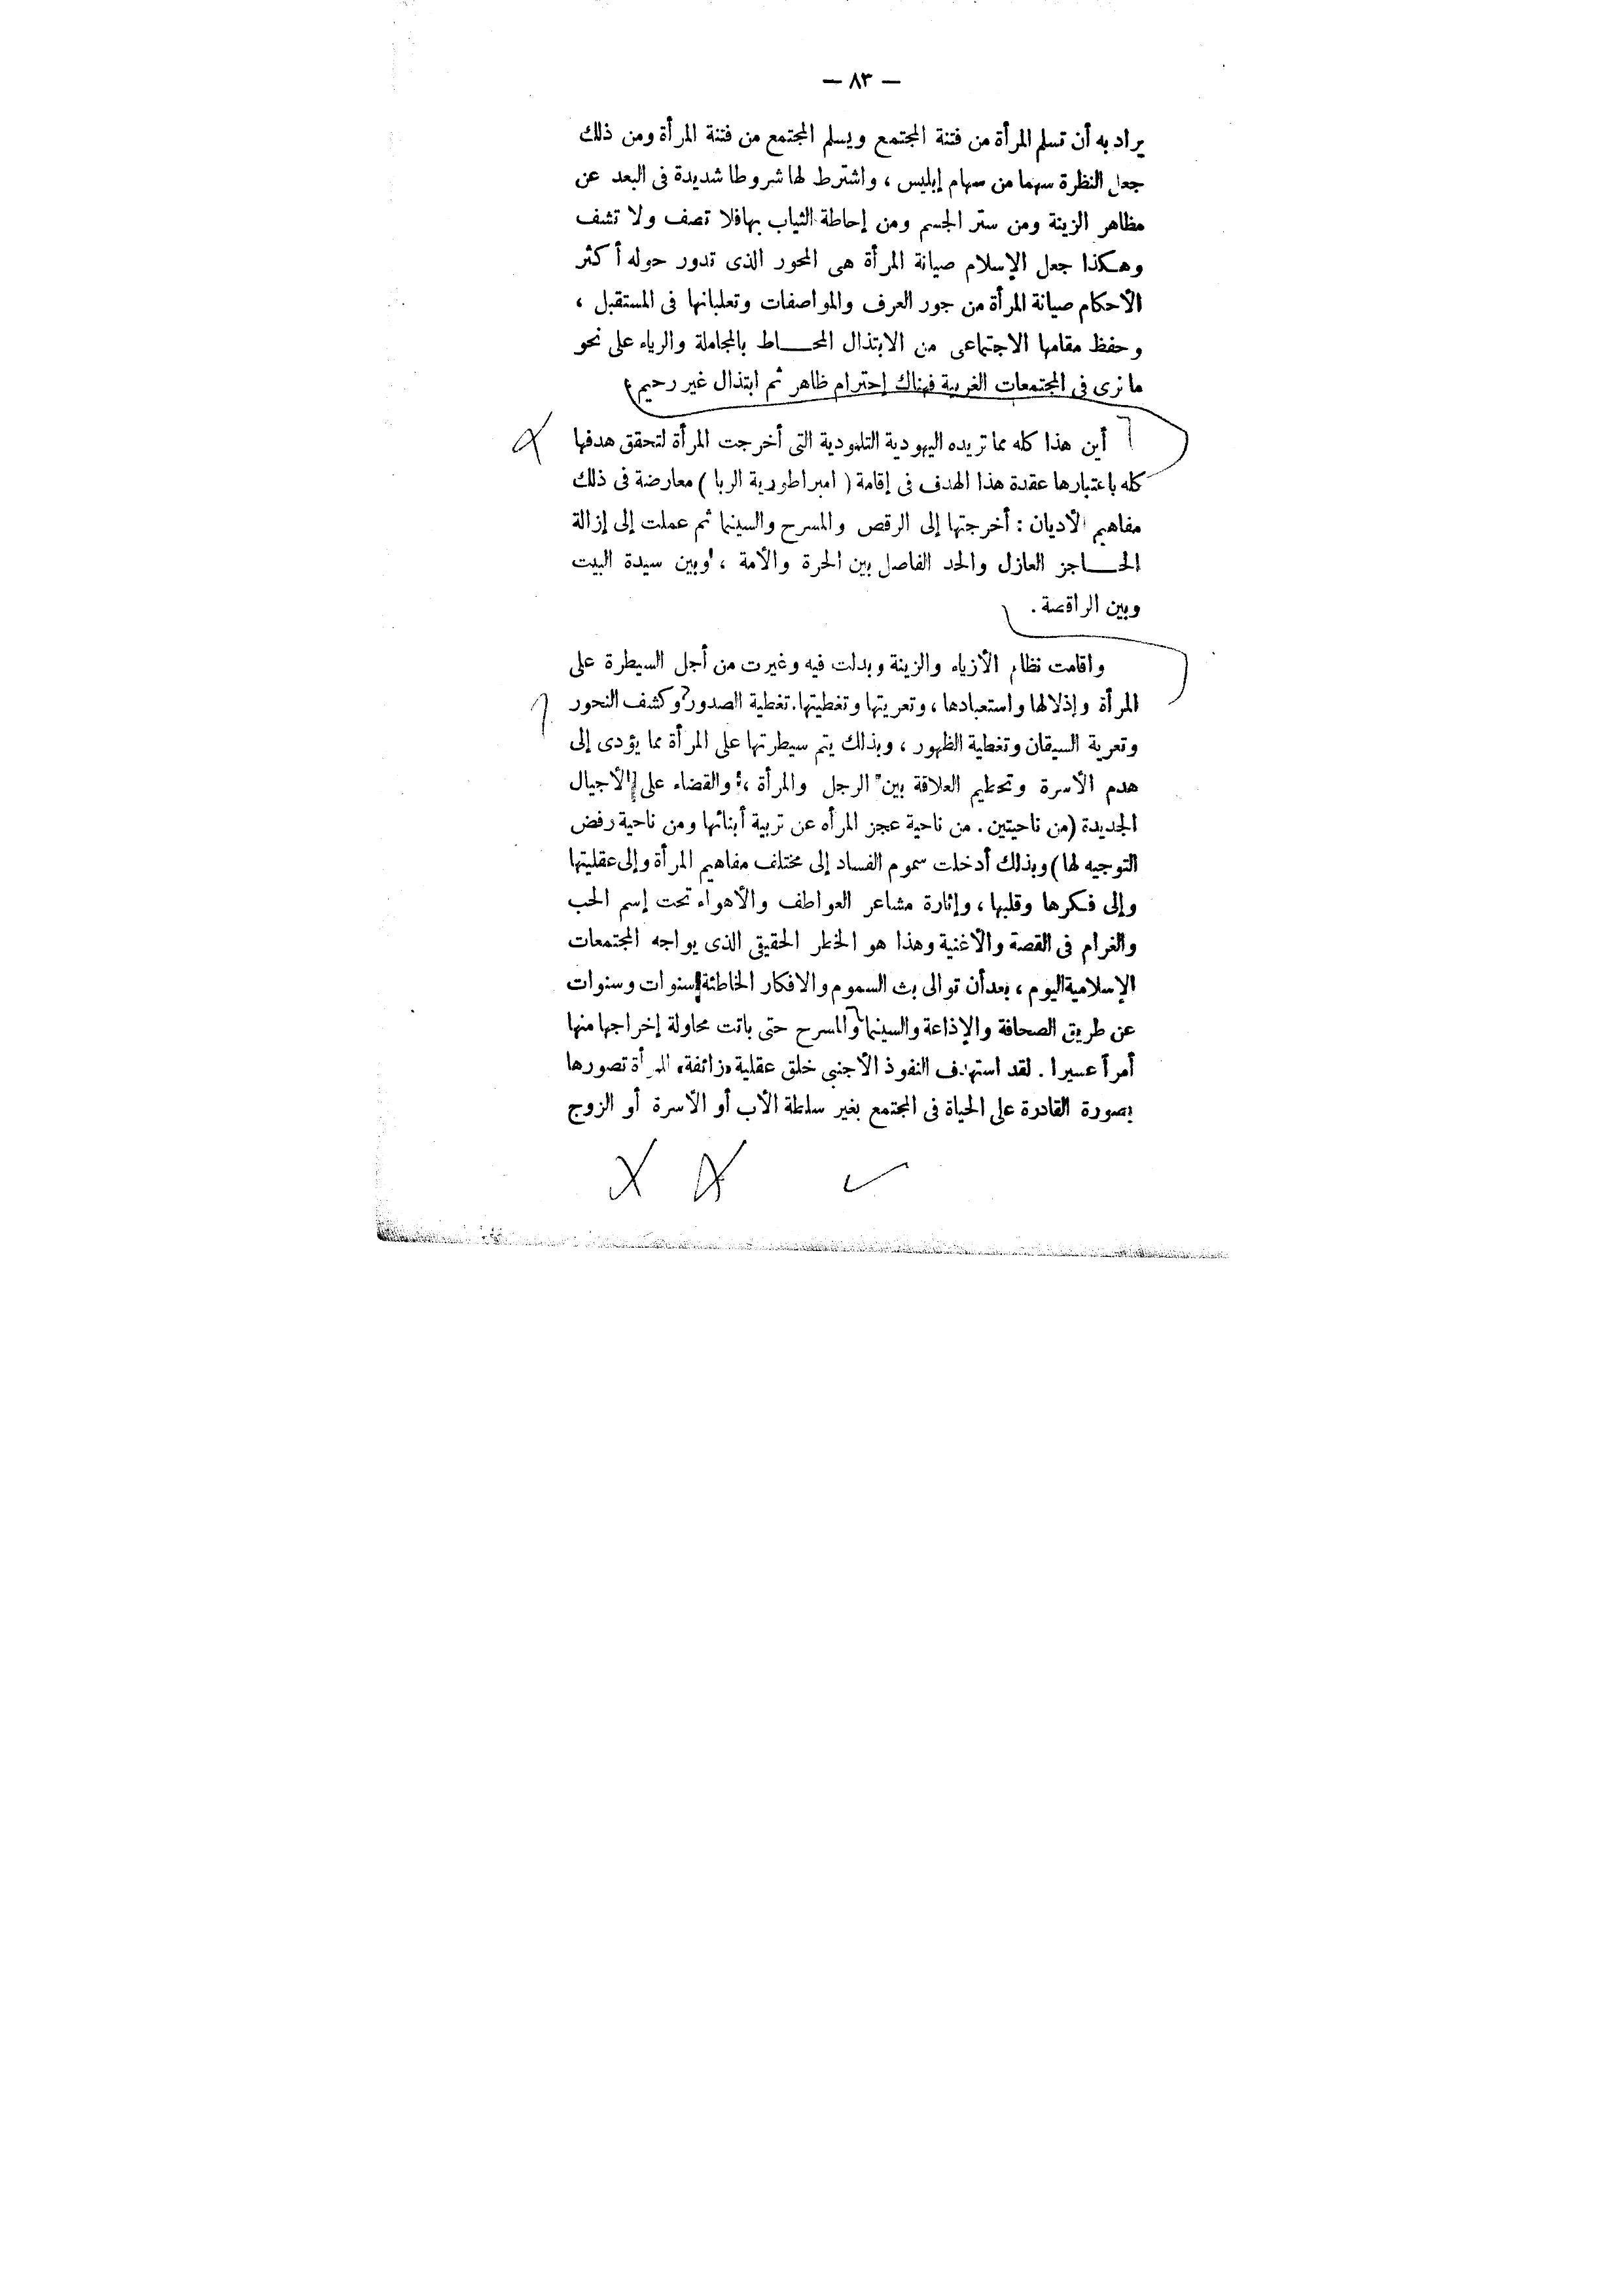 — ٨٣ —
يراد به أن تسلم المرأة من فتنة المجتمع ويسلم المجتمع من فتنة المرأة ومن ذلك
جعل النظرة سهما من سهام إبليس ، واشترط لها شروطا شديدة فى البعد عن
مظاهر الزينة ومن ستر الجسم ومن إحاطة الثياب بها فلا تصف ولا تشف
وهكذا جعل الإسلام صيانة المرأة هى المحور الذى تدور حوله أكثر
الأحكام صيانة المرأة من جور العرف والمواصفات وتعلباتها فى المستقبل ،
وحفظ مقامها الاجتماعى من الابتذال المحاط بالمجاملة والرياء على نحو
ما نرى فى المجتمعات الغربية فهناك إحترام ظاهر ثم ابتذال غير رحيم
أين هذا كله مما تريده اليهودية التلمودية التى أخرجت المرأة لتحقق هدفها
كله باعتبارها عقدة هذا الهدف فى إقامة ( امبراطورية الربا ) معارضة فى ذلك
مفاهيم الأديان : أخرجتها إلى الرقص والمسرح والسينما ثم عملت إلى إزالة
الحاجز العازل والحد الفاصل بين الحرة والأمة ، وبين سيدة البيت
وبين الراقصة .
واقامت نظام الأزياء والزينة وبدلت فيه وغيرت من أجل السيطرة على
المرأة وإذلالها واستعبادها ، وتعريتها وتغطيتها . تغطية الصدور وكشف النحور
وتعرية السيقان وتغطية الظهور ، وبذلك يتم سيطرتها على المرأة مما يؤدى إلى
هدم الأسرة وتحطيم العلاقة بين الرجل والمرأة ، والقضاء على الأجيال
الجديدة (من ناحيتين . من ناحية عجز المرأه عن تربية أبنائها ومن ناحية رفض
التوجيه لها) وبذلك أدخلت سموم الفساد إلى مختلف مفاهيم المرأة وإلى عقليتها
وإلى فكرها وقلبها ، وإثارة مشاعر العواطف والأهواء تحت إسم الحب
والغرام فى القصة والأغنية وهذا هو الخطر الحقيقى الذى يواجه المجتمعات
الإسلامية اليوم ، بعد أن توالى بث السموم والافكار الخاطئة سنوات وسنوات
عن طريق الصحافة والإذاعة والسينما والمسرح حتى باتت محاولة إخراجها منها
أمراً عسيرا . لقد استهدف النفوذ الأجنبى خلق عقلية «زائفة» للمرأة تصورها
بصورة القادرة على الحياة فى المجتمع بغير سلطة الأب أو الأسرة أو الزوج